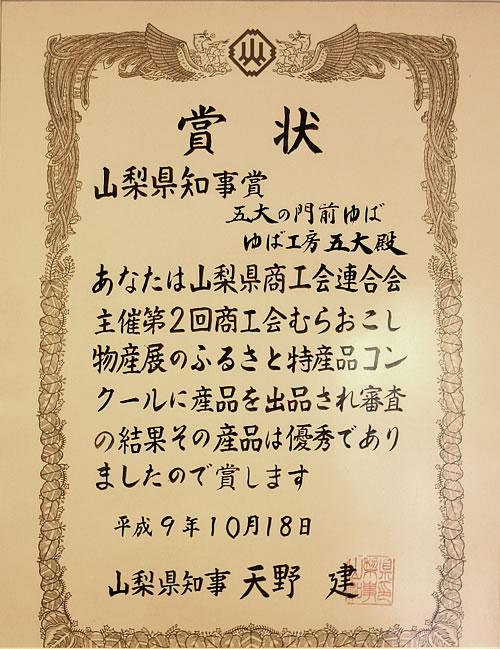 賞 状
山梨県知事賞
五大の門前ゆば
ゆば工房 五大殿
あなたは山梨県商工会連合会
主催第2回商工会むらおこし
物産展のふるさと特産品コン
クールに産品を出品され審査
の結果その産品は優秀であり
ましたので賞します
平成9年10月18日
山梨県知事 天野 建